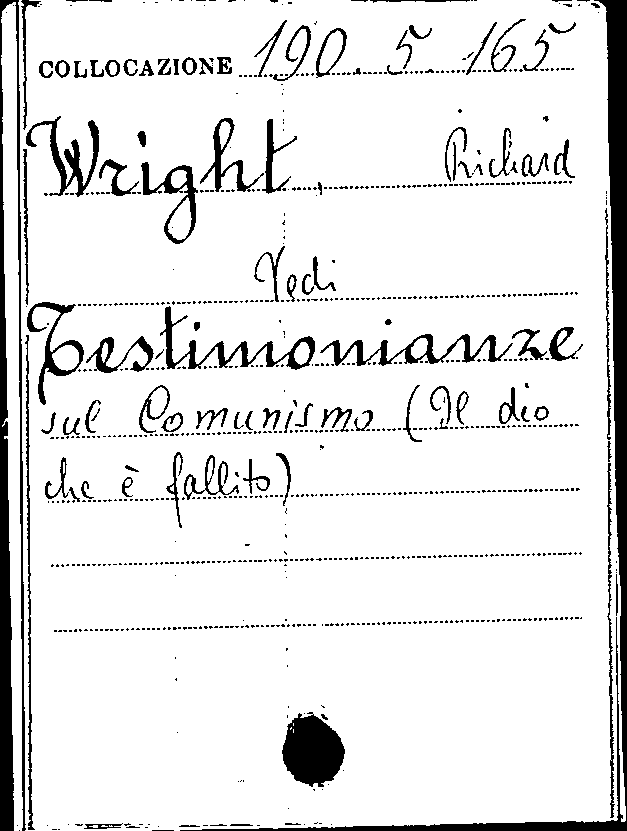 COLLOCAZIONE 190. 5. 165
Wright, Richard
Vedi
Testimonianze
sul Comunismo (Il dio
che è fallito)